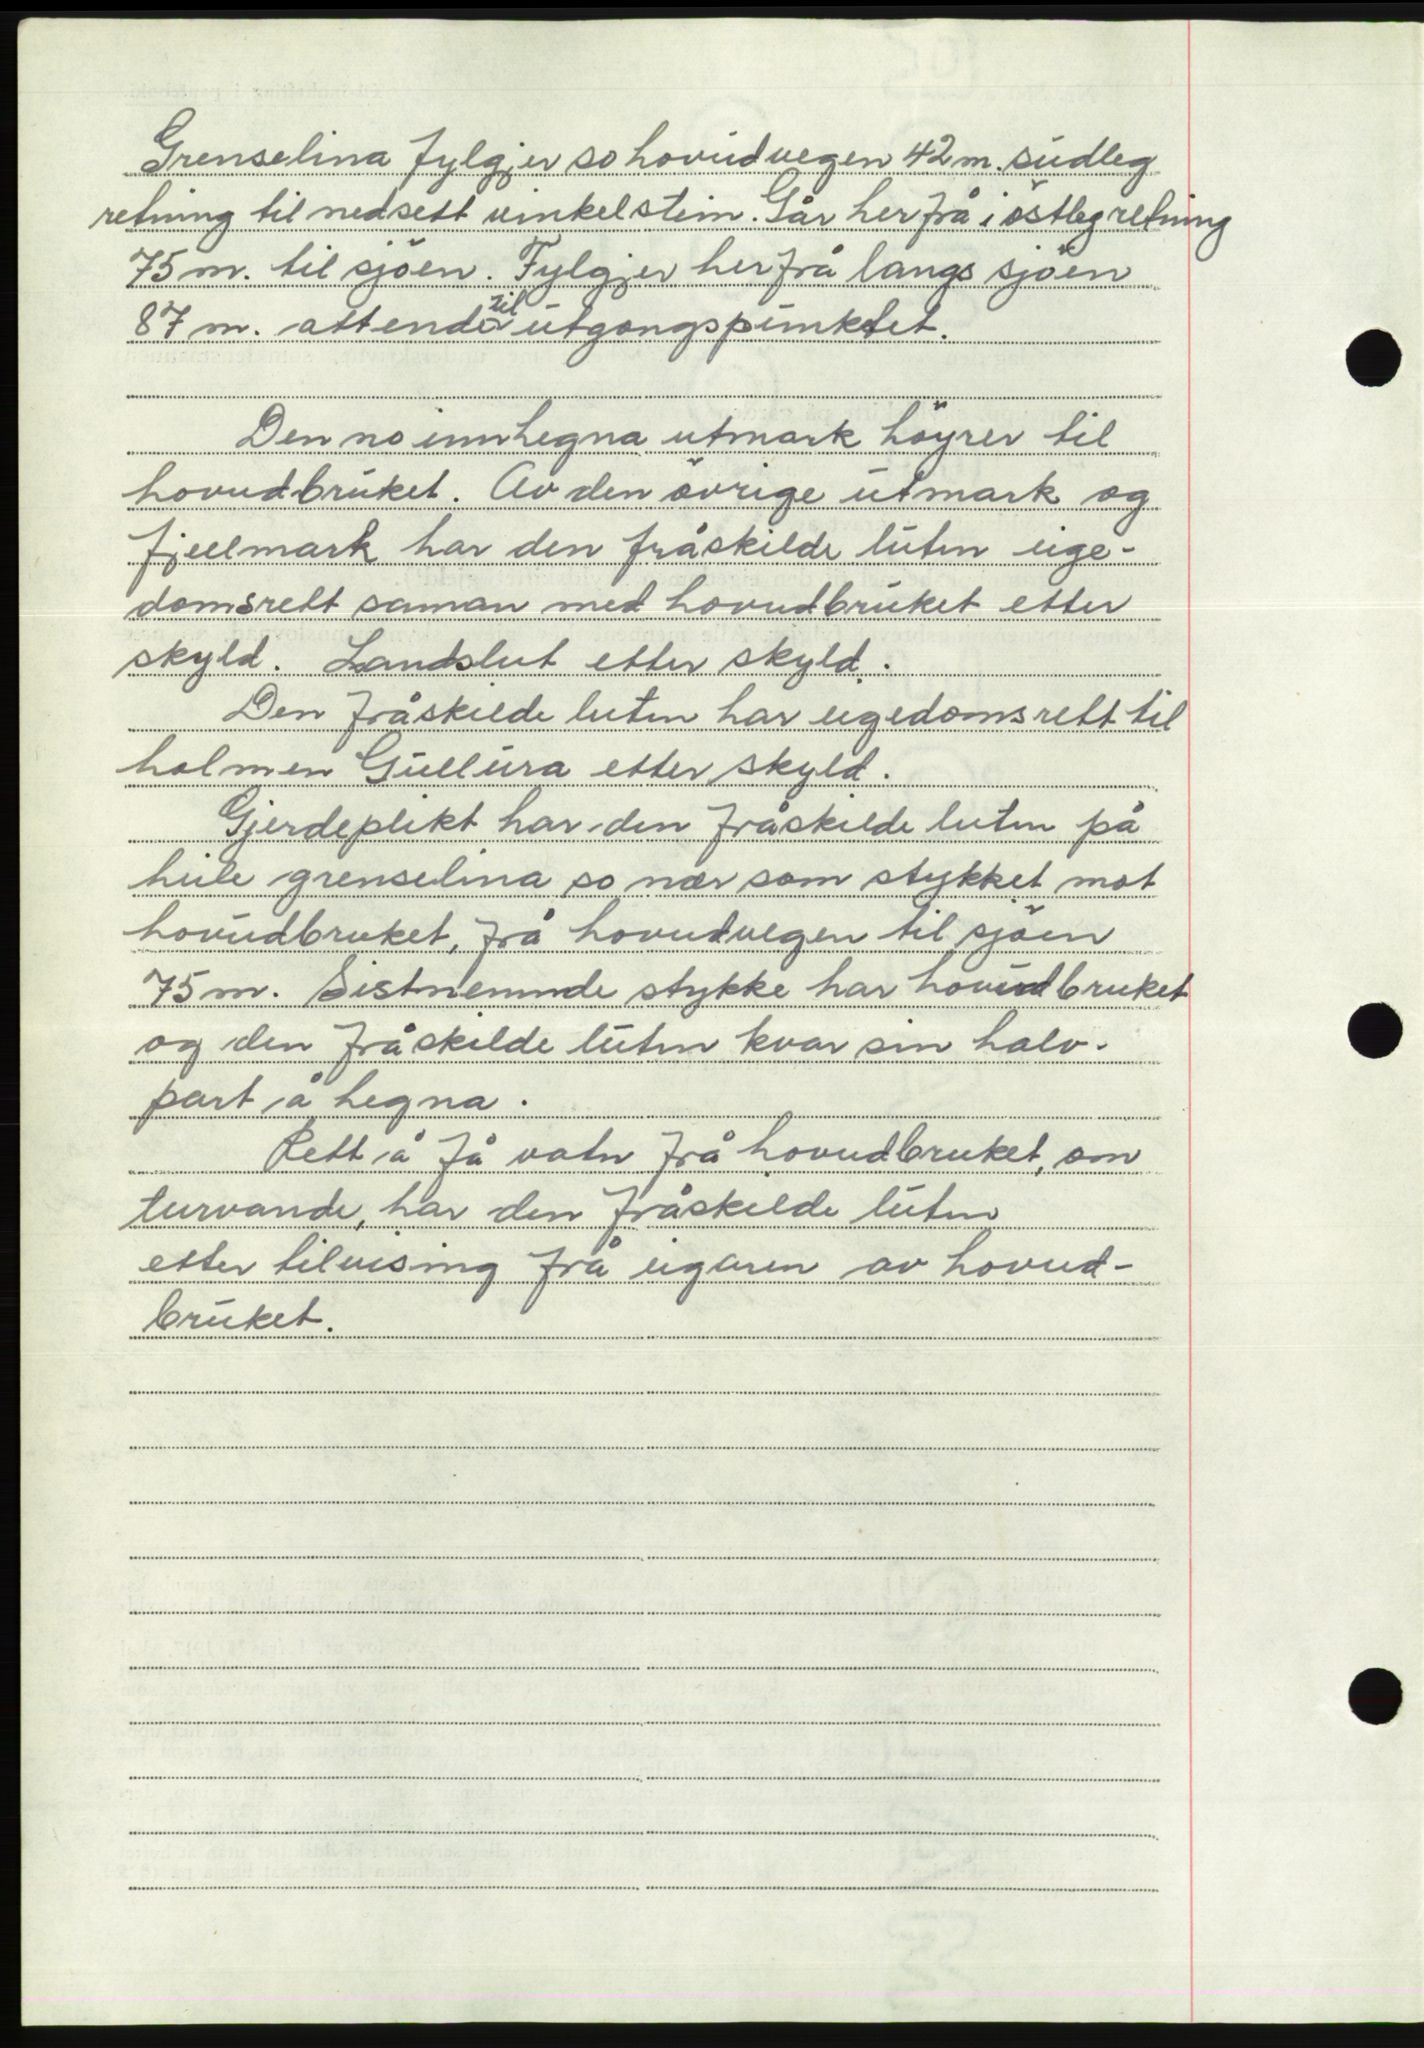 Grenselina fylgjer so hovudvegen 42 m. sudleg
retning til nedsett vinkelstein. Går herfrå i östleg retning
75 m. til sjöen. Fylgjer herfrå langs sjöen
87 m. attende til utgongspunktet.
Den no innhegna utmark höyrer til
hovudbruket. Av den övrige utmark og
fjellmark har den fråskilde luten eige-
domsrett saman med hovudbruket etter
skyld. Landslut etter skyld.
Den fråskilde luten har eigedomsrett til
holmen Gullura etter skyld.
Gjerdeplikt har den fråskilde luten på
heile grenselina so nær som stykket mot
hovudbruket, frå hovudvegen til sjöen
75 m. Sistnemnde stykke har hovudbruket
og den fråskilde luten kvar sin halv-
part å hegna.
Rett å få vatn frå hovudbruket, om
turvande, har den fråskilde luten
etter tilvising frå eigaren av hovud-
bruket.